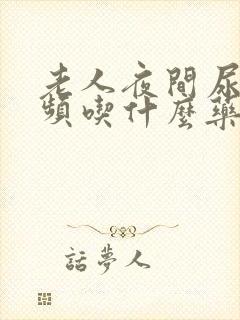 老人夜間尿
頻喫什麼藥
話夢人